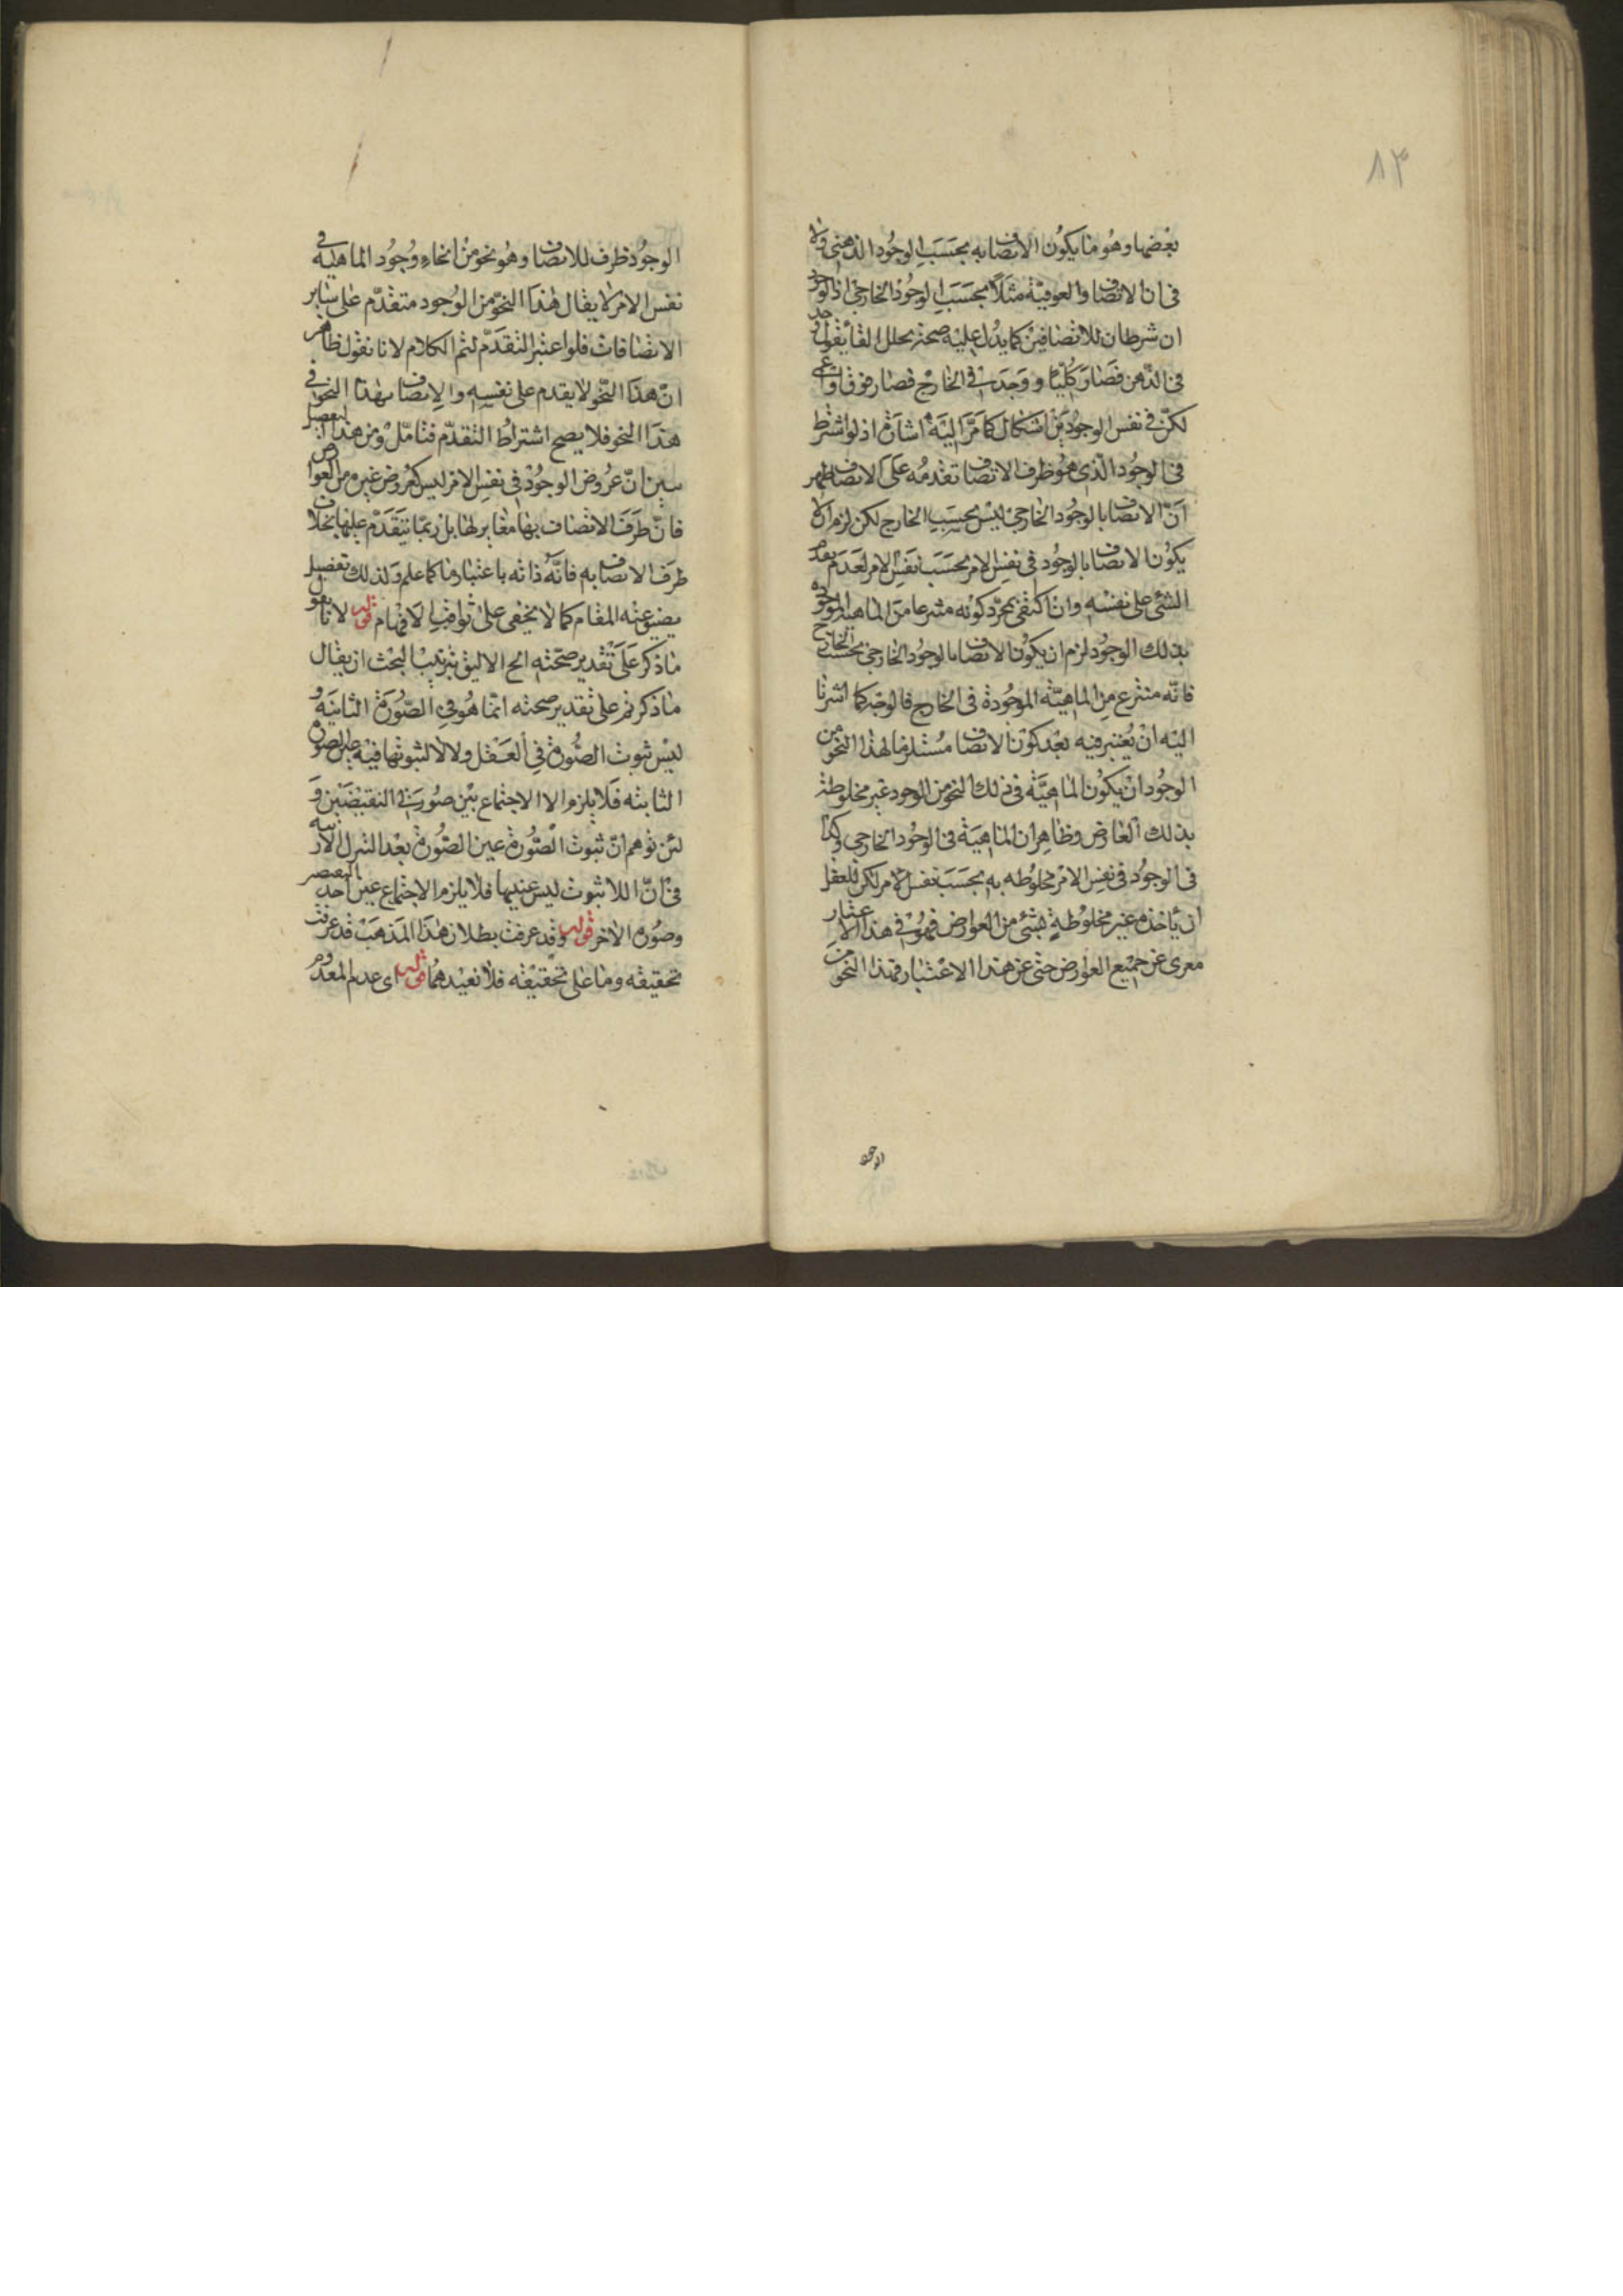 ٨٣
بعضها وهو ما يكون الاتصاف به بحسب الوجود الذهنى ولا
فى ان الاتصاف والعوقية مثلا بحسب الوجود الخارجى اذ الوجود
ان شرطان للاتصافين كما يدل عليه صحة تخلل الفا يقول وجد
فى الذهن فصار كليا ووجدت فى الخارج فصار فوق او
لكن فى نفس الوجودين اشكال كما مر اليه اشارة اذ لو اشترط
فى الوجود الذى هو ظرف الاتصاف تقدمه على الاتصاف ظهر
ان الاتصاف بالوجود الخارجى ليس بحسب الخارج لكن لزم الا
يكون الاتصاف بالوجود فى نفس الامر بحسب نفس الامر لعدم تقدم
الشئ على نفسه وان اكتفى بمجرد كونه منتزعا من الماهية الموجودة
بذلك الوجود لزم ان يكون الاتصاف بالوجود الخارجى بحسب الخارج
فانه منتزع من الماهية الموجودة فى الخارج فالوجه كما اشرنا
اليه ان يعتبر فيه بعد كون الاتصاف مستلزما لهذا النحو من
الوجود ان يكون الماهية فى ذلك النحو من الوجود غير مخلوطة
بذلك العارض وظاهر ان الماهية فى الوجود الخارجى وكذا
فى الوجود فى نفس الامر مخلوطه به بحسب نفس الامر لكن للعقل
ان ياخذه غير مخلوطة بشئ من العوارض فهو فى هذا الاعتبار
معرى عن جميع العوارض حتى عن هذا الاعتبار فهذا النحو من
الوجو
الوجود ظرف للاتصاف وهو نحو من انحاء وجود الماهية فى
نفس الامر لا يقال هذا النحو من الوجود متقدم على سائر
الاتصافات فلو اعتبر التقدم لتم الكلام لانا نقول ظاهر
ان هذا النحو لا يقدم على نفسه والاتصاف بهذا النحو فى
هذا النحو فلا يصح اشتراط التقدم فتامل ومن هذا التفصيل
تبين ان عروض الوجود فى نفس الامر ليس كعروض غيره من العوارض
فان ظرف الاتصاف بها مغاير لها بل ربما يتقدم عليها بخلاف
ظرف الاتصاف به فانه ذاته باعتبار ما كما علم ولذلك تفصيل
يضيق عنه المقام كما لا يخفى على ثواقب الافهام قوله لانا نقول
ما ذكر على تقدير صحته الخ الاليق بترتيب البحث ان يقال
ما ذكر تم على تقدير صحته انما هو فى الصورة الثانية و
ليس ثبوت الصورة فى العقل ولا لا ثبوتها فيه الصورة
الثابته فلا يلزم الا الاجتماع بين صورتى النقيضين و
لئن توهم ان ثبوت الصورة عين الصورة بعد التنزل
فى ان اللا ثبوت ليس عينها فلا يلزم الاجتماع عين احد النقيضين
وصورة الاخر قوله وقد عرفت بطلان هذا المذهب قد عرفت
تحقيقه وما على تحقيقه فلا نعيدهما قوله اى عدم المعدوم